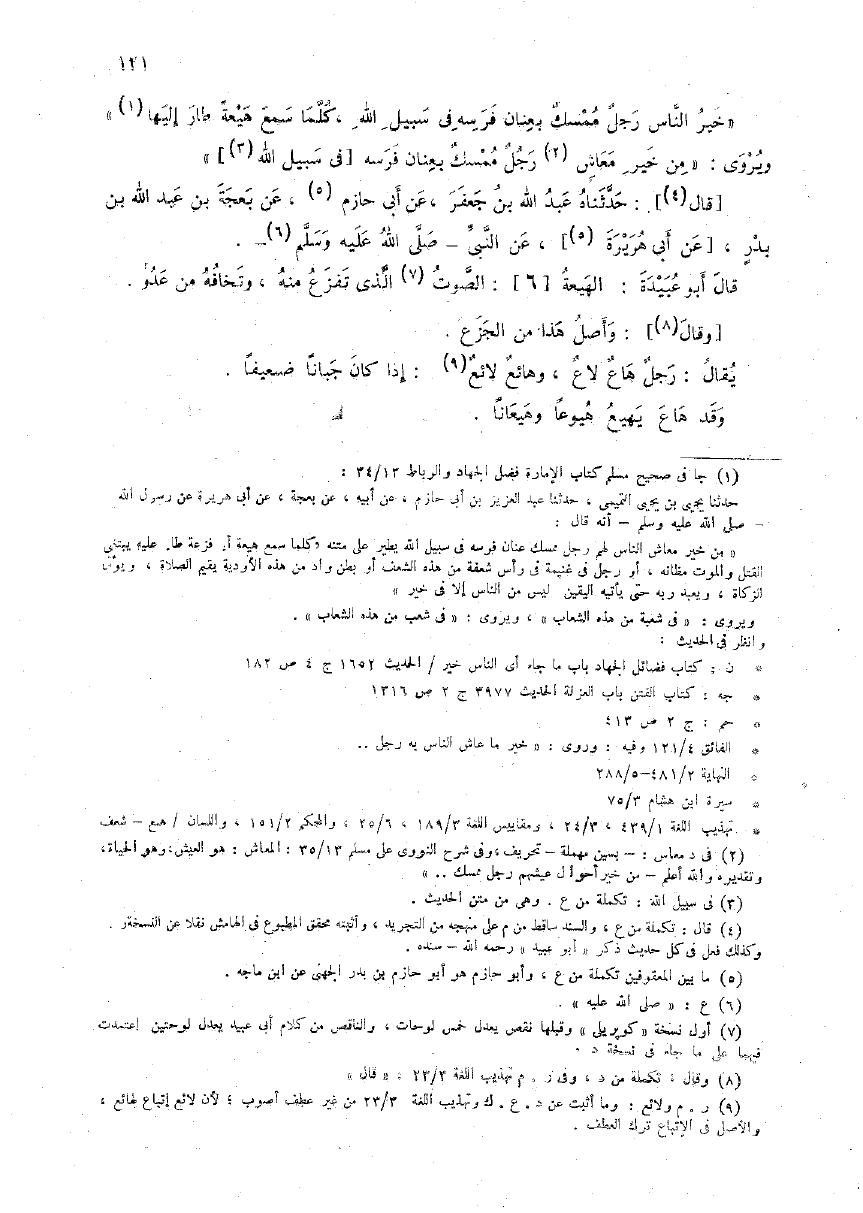 ١٢١
« خَيرُ النَّاس رَجلٌ مُمْسكٌ بعِنان فَرَسِه فى سَبيل اللهِ ، كُلَّمَا سَمعَ هَيْعةً طارَ إليَها (١) »
ويُرْوَى : « مِن خَيرِ مَعَاشٍ (٢) رَجُلٌ مُمْسكٌ بعِنان فَرَسه [ فى سَبيل الله (٣) ] »
[ قال (٤) ] : حَدَّثَناهُ عَبدُ الله بنُ جَعفَرَ ، عَن أبى حازم (٥) ، عَن بَعجَةَ بن عَبد الله بن
بدْرٍ ، [ عَن أبى هُرَيْرَةَ (٥) ] ، عَن النَّبىِّ – صَلَّى اللهُ عَلَيه وَسَلَّم (٦) – .
قالَ أَبو عُبَيْدَةَ : الهَيعةُ [ ٦ ] : الصَّوتُ (٧) الَّذى تَفزَعُ منهُ ، وتَخافُهُ من عَدُوّ .
[ وقالَ (٨) ] : وَأَصلُ هَذا من الجَزَع .
يُقالُ : رَجلٌ هَاعٌ لاعٌ ، وهائعٌ لائعٌ (٩) : إذا كانَ جَباناً ضَعيفاً .
وَقَد هَاعَ يَهيعُ هُيوعاً وهَيَعَانًا .
(١) جا فى صحيح مسلم كتاب الإمارة فضل الجهاد والرباط ٣٤/١٣ :
حدثنا يحيى بن يحيى التميمى ، حدثنا عبد العزيز بن أبى حازم ، عن أبيه ، عن بعجة ، عن أبى هريرة عن رسول الله
– صلى الله عليه وسلم – أنه قال :
« من خير معاش الناس لهم رجل ممسك عنان فرسه فى سبيل الله يطير على متنه كلما سمع هيعة أو فزعة طار عليه يبتغى
القتل والموت مظانه ، أو رجل فى غنيمة فى رأس شعفة من هذه الشعف أو بطن واد من هذه الأودية يقيم الصلاة ، ويؤتى
الزكاة ، ويعبد ربه حتى يأتيه اليقين ليس من الناس إلا فى خير »
ويروى : « فى شعبة من هذه الشعاب » ، ويروى : « فى شعب من هذه الشعاب » .
وانظر فى الحديث :
* ن : كتاب فضائل الجهاد باب ما جاء أى الناس خير / الحديث ١٦٥٢ ج ٤ ص ١٨٢
* جه : كتاب الفتن باب العزلة الحديث ٣٩٧٧ ج ٢ ص ١٣١٦
* حم : ج ٢ ص ٤١٣
* الفائق ١٢١/٤ وفيه : وروى : « خير ما عاش الناس به رجل ..
* النهاية ٤٨١/٢–٢٨٨/٥
* سيرة ابن هشام ٧٥/٣
* تهذيب اللغة ٤٣٩/١ ، ٢٤/٣ ، ومقاييس اللغة ١٨٩/٣ ، ٢٥/٦ ، والمحكم ١٥١/٢ ، واللسان / هيع – شعف
(٢) فى د معاس : – بسين مهملة – تحريف، وفى شرح النووى على مسلم ٣٥/١٣ : المعاش : هو العيش، وهو الحياة،
وتقديره والله أعلم – من خير أحوال عيشهم رجل ممسك .. »
(٣) فى سبيل الله : تكملة من ع . وهى من متن الحديث .
(٤) قال : تكملة من ع ، والسند ساقط من م على منهجه من التجريد ، وأثبته محقق المطبوع فى الهامش نقلا عن النسخة ر .
وكذلك فعل فى كل حديث ذكر « أبو عبيد » رحمه الله – سنده .
(٥) ما بين المعقوفين تكملة من ع ، وأبو حازم هو أبو حازم بن بدر الجهنى عن ابن ماجه .
(٦) ع : « صلى الله عليه » .
(٧) أول نسخة « كوبريلى » وقبلها نقص يعدل خمس لوحات ، والناقص من كلام أبى عبيد يعدل لوحتين إعتمدت
فيهما على ما جاء فى نسخة د .
(٨) وقال : تكملة من د ، وفى ر . م تهذيب اللغة ٢٣/٣ : « قال »
(٩) ر . م ولائع : وما أثبت عن د . ع . ك وتهذيب اللغة ٢٣/٣ من غير عطف أصوب ؛ لأن لائع إتباع لهائع ،
والأصل فى الإتباع ترك العطف .